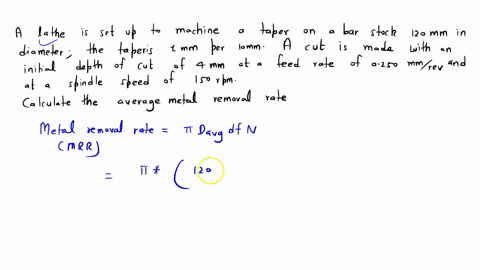 A lathe is set up to machine a taper on a bar stock 120 mm in
diameter; the taper is 1 mm per 10mm. A cut is made with an
initial depth of cut of 4 mm at a feed rate of 0.250 mm/rev and
at a spindle speed of 150 rpm.
Calculate the average metal removal rate
Metal removal rate = π Davg d f N
(MRR)
= π * ( 120